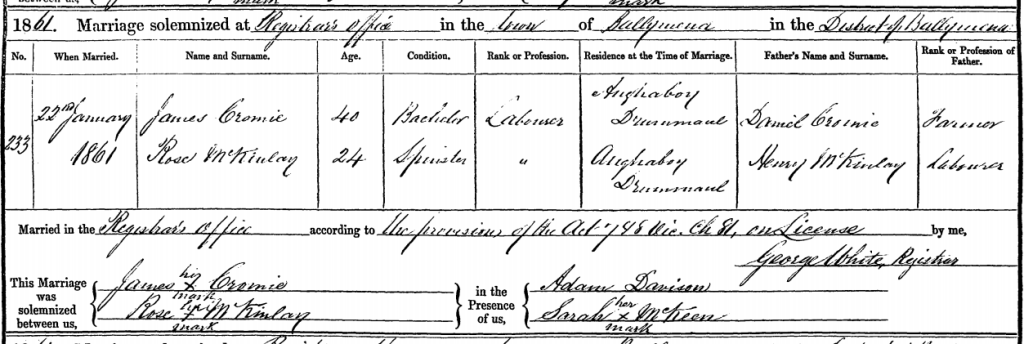 1861. Marriage solemnized at Registrar's Office in the town of Ballymena in the District of Ballymena
No. When Married. Name and Surname. Age. Condition. Rank or Profession. Residence at the Time of Marriage. Father's Name and Surname. Rank or Profession of Father.
233
22nd January 1861
James Cromie 40 Bachelor Labourer Aughaboy Drummaul Daniel Cromie Farmer
Rose McKinlay 24 Spinster " Aughaboy Drummaul Henry McKinlay Labourer
Married in the Registrar's Office according to the provisions of the Act 7 & 8 Vic. Ch 81, on License by me,
George White, Registrar
This Marriage was solemnized between us,
James his x mark Cromie
Rose her x mark McKinlay
in the Presence of us,
Adam Davison
Sarah her x mark McKeen